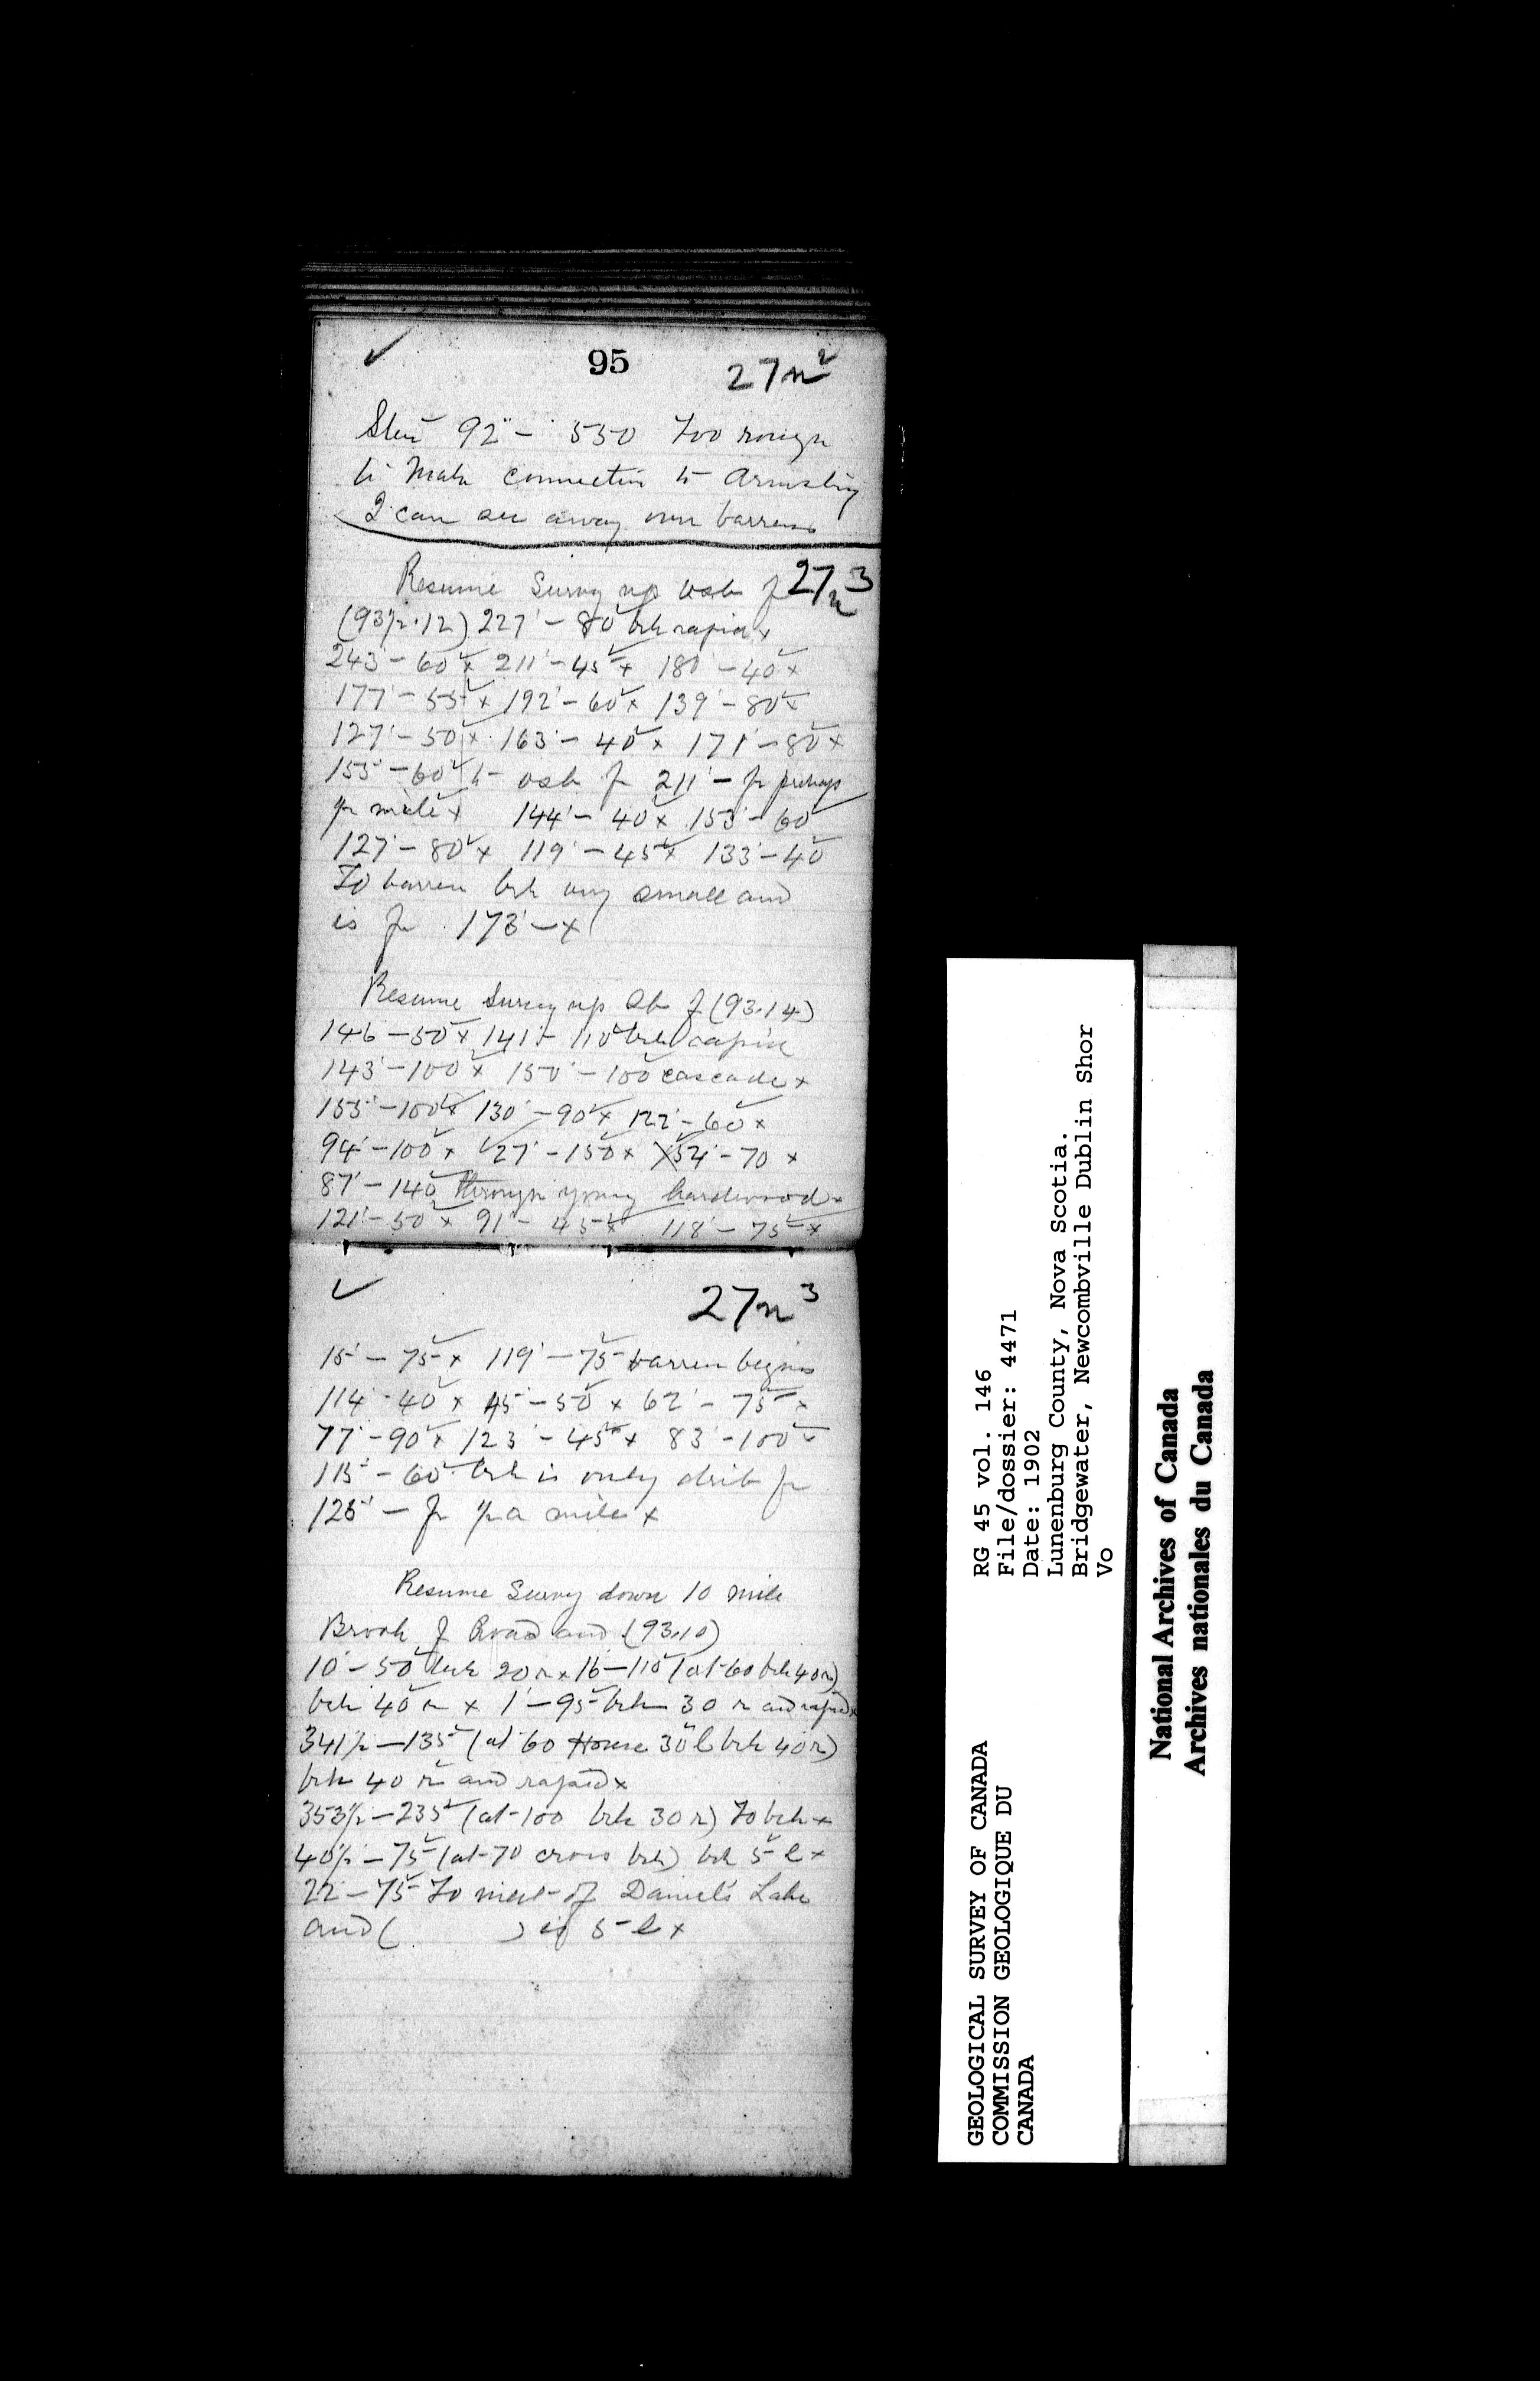 95
27n²
92' - 550 Too rough
to make connection to Armstrong
I can see away over barrens
Resume Survey up osb f 27n3
(93½.12) 227' - 80 brk rapid x
243' - 60 x 211' - 45 x 180' - 40 x
177' - 55 x 192' - 60 x 139' - 80 x
127' - 50 x 163' - 40 x 171' - 80 x
155' - 60 to osb fr 211' - fr perhaps
½ mile x 144' - 40 x 153' - 60
127' - 80 x 119' - 45 x 133' - 40
To barren brk very small and
is fr 173' - x
Resume Survey up Sb f (93.14)
146 - 50 x 141' - 110 brk rapid
143' - 100 x 150' - 100 cascade x
155' - 100 x 130' - 90 x 122' - 60 x
94' - 100 x 127' - 150 x 154' - 70 x
87' - 140 through young hardwood x
121' - 50 x 91' - 45 x 118' - 75 x
27n³
15' - 75 x 119' - 75 barren begins
114' - 40 x 45' - 50 x 62' - 75 x
77' - 90 x 123' - 45 x 83' - 100 x
115' - 60 brk is only drib fr
125' - fr ½ a mile x
Resume Survey down 10 mile
Brook f Road and (93.10)
10' - 50 brk 20 r x 16 - 110 (at 60 brk 40 r)
brk 40 r x 1' - 95 brk 30 r and rapid x
341½ - 135 (at 60 House 30 l brk 40 r)
brk 40 r and rapid x
353½ - 235 (at 100 brk 30 r) To brk x
40½ - 75 (at 70 cross brk) brk 5 l x
22' - 75 To meet of Daniels Lake
and ( ) is 5 l x
GEOLOGICAL SURVEY OF CANADA
COMMISSION GEOLOGIQUE DU
CANADA
RG 45 vol. 146
File/dossier: 4471
Date: 1902
Lunenburg County, Nova Scotia.
Bridgewater, Newcombville Dublin Shor
Vo
National Archives of Canada
Archives nationales du Canada